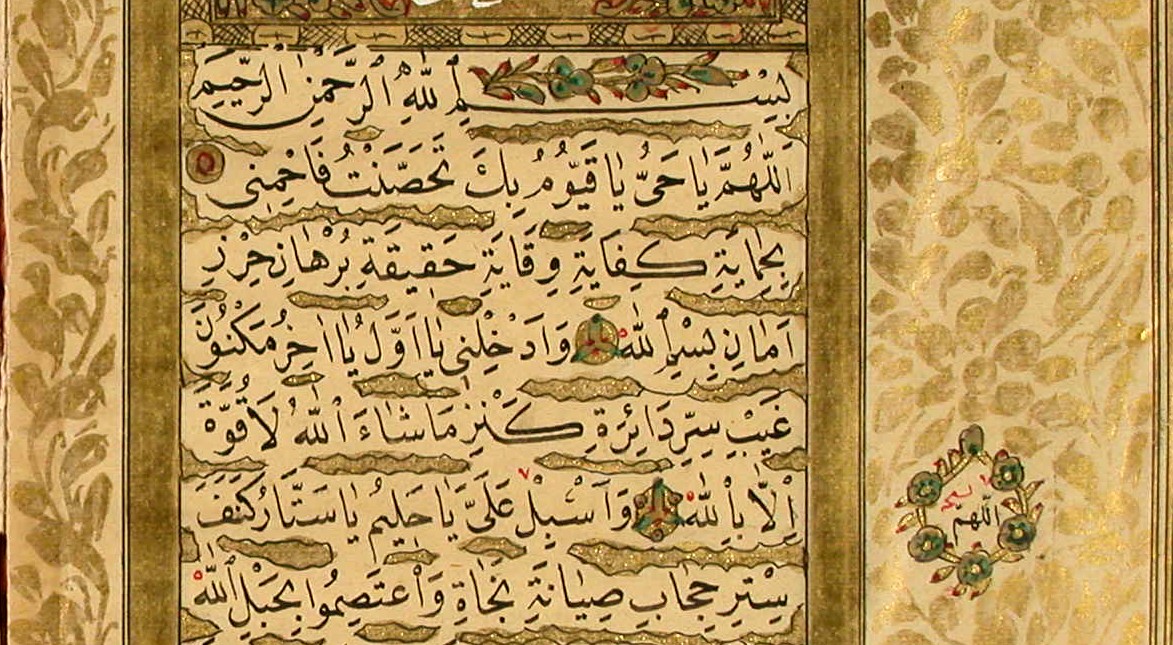 بِسْمِ اللهِ الرَّحْمٰنِ الرَّحِيمِ
اَللّٰهُمَّ يَا حَىُّ يَا قَيُّومُ بِكَ تَحَصَّنْتُ فَاحْمِنِى
بِحِمَايَةِ كِفَايَةِ وِقَايَةِ حَقِيقَةِ بُرْهَانِ حِرْزِ
اَمَانِ بِسْمِ اللهِ وَاَدْخِلْنِى يَا اَوَّلُ يَا اٰخِرُ مَكْنُونَ
غَيْبِ سِرِّ دَائِرَةِ كَنْزِ مَا شَاءَ اللهُ لَا قُوَّةَ
اِلَّا بِاللهِ وَاَسْبِلْ عَلَىَّ يَا حَلِيمُ يَا سَتَّارُ كَنَفَ
سِتْرِ حِجَابِ صِيَانَةِ نَجَاةِ وَاعْتَصِمُوا بِحَبْلِ اللهِ
اللهم